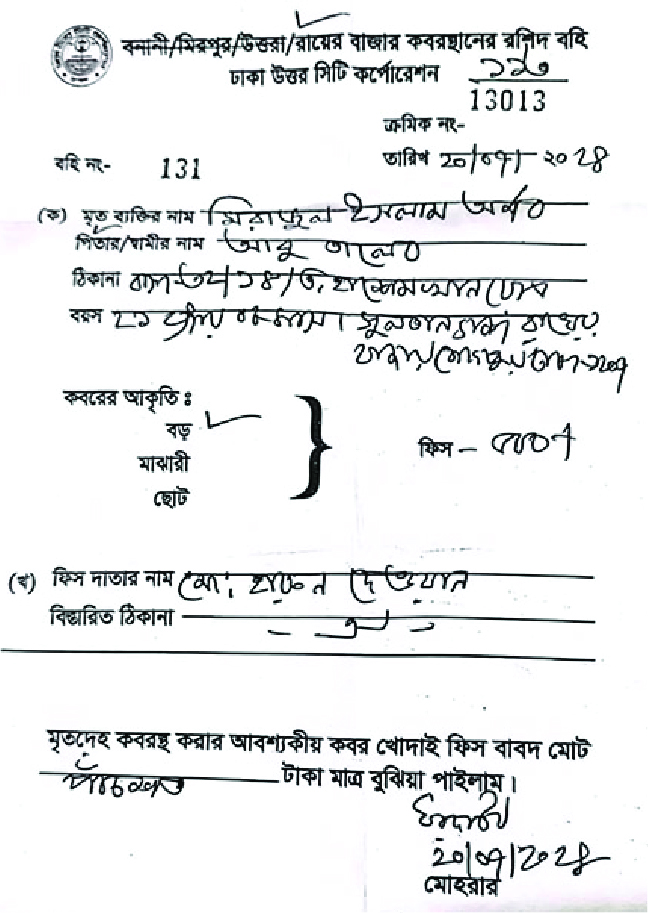 বনানী/মিরপুর/উত্তরা/রায়ের বাজার কবরস্থানের রশিদ বহি
ঢাকা উত্তর সিটি কর্পোরেশন
13013
ক্রমিক নং-
বহি নং- 131 তারিখ ২০/০৭/২০২৪
(ক) মৃত ব্যক্তির নাম মিরাজুল ইসলাম অর্ণব
পিতার/স্বামীর নাম আবু তালেব
ঠিকানা
বয়স ২১ সুলতানগঞ্জ রায়ের
বাজার মোহাম্মদপুর ঢাকা-১২০৭
কবরের আকৃতি ঃ
বড়
মাঝারী
ছোট
ফিস - ৫০০/
(খ) ফিস দাতার নাম মো: হারুন দেওয়ান
বিস্তারিত ঠিকানা - ঐ -
মৃতদেহ কবরস্থ করার আবশ্যকীয় কবর খোদাই ফিস বাবদ মোট
পাঁচশত টাকা মাত্র বুঝিয়া পাইলাম।
২০/০৭/২০২৪
মোহরার